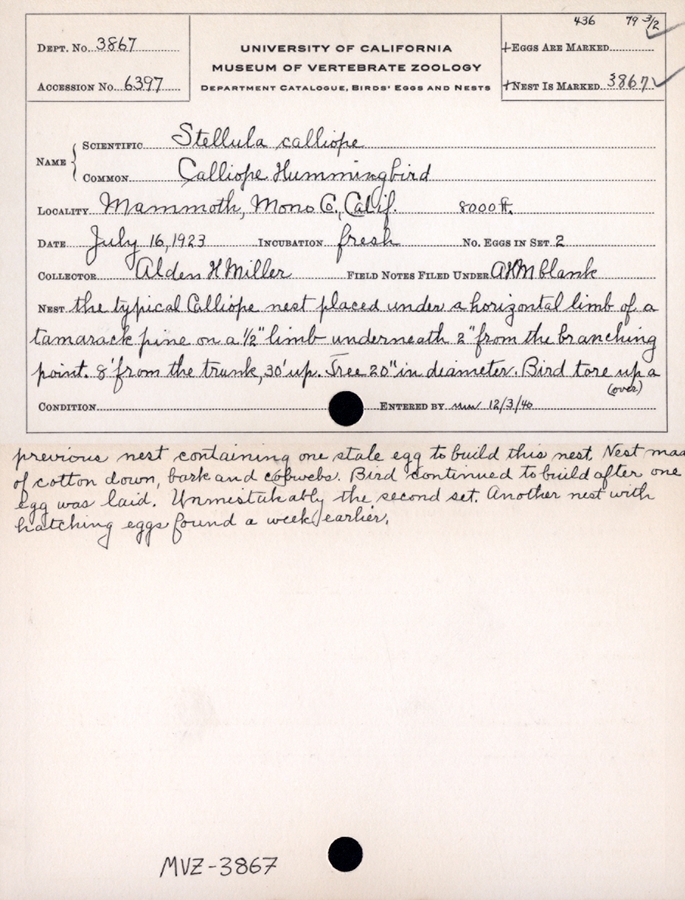 436 79 3/2
Dept. No. 3867
UNIVERSITY OF CALIFORNIA
+Eggs Are Marked
MUSEUM OF VERTEBRATE ZOOLOGY
Accession No. 6397
Department Catalogue, Birds' Eggs and Nests
+Nest Is Marked 3867
Name
Scientific Stellula calliope
Common Calliope Hummingbird
Locality Mammoth, Mono Co., Calif. 8000 ft.
Date July 16, 1923 Incubation fresh No. Eggs in Set 2
Collector Alden H Miller Field Notes Filed Under AHM blank
Nest the typical Calliope nest placed under a horizontal limb of a
tamarack pine on a 1/2" limb underneath 2" from the branching
point. 8' from the trunk, 30' up. Tree 20" in diameter. Bird tore up a
(over)
Condition Entered by 12/3/40
previous nest containing one stale egg to build this nest. Nest mad
of cotton down, bark and cobwebs. Bird continued to build after one
egg was laid. Unmistakably the second set. Another nest with
hatching eggs found a week earlier.
MVZ-3867